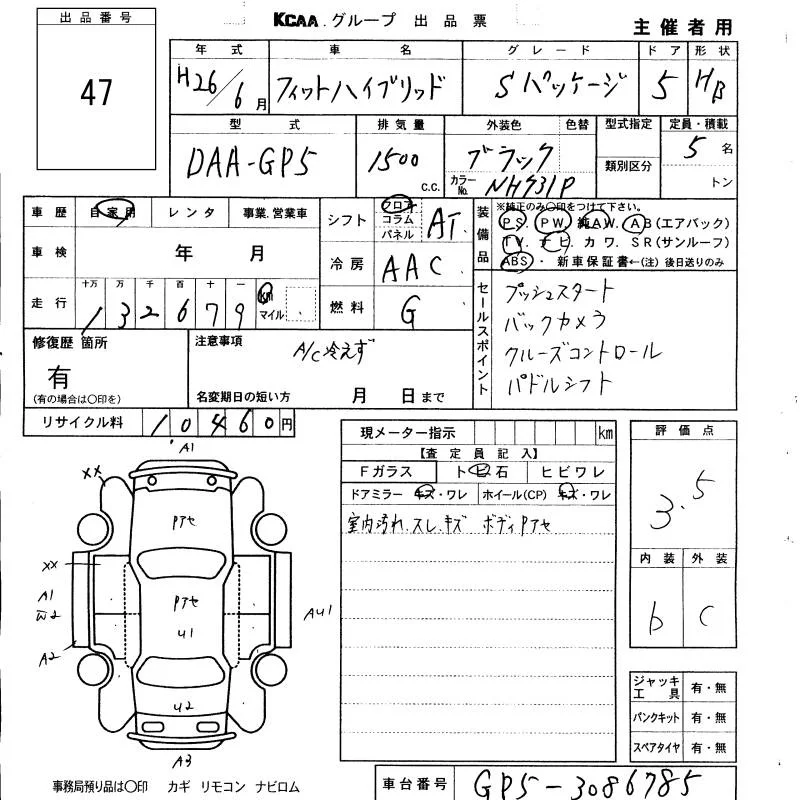 出品番号
47
KCAA.グループ 出品票
主催者用
年式 車名 グレード ドア 形状
H26/6月 フィットハイブリッド Sパッケージ 5 HB
型式 排気量 外装色 色替 型式指定 定員・積載
DAA-GP5 1500 c.c. ブラック 5名
カラーNo. NH731P 類別区分 トン
車歴 自家用 レンタ 事業.営業車
車検 年 月
走行 十万 万 千 百 十 一
132679 km マイル
シフト フロア コラム パネル AT
冷房 AAC
燃料 G
装備品
※純正のみ○印をつけて下さい。
PS. PW. 純AW. AB(エアバック)
TV. ナビ. カワ. SR(サンルーフ)
ABS・新車保証書←(注)後日送りのみ
セールスポイント
プッシュスタート
バックカメラ
クルーズコントロール
パドルシフト
修復歴 箇所
有
(有の場合は○印を)
注意事項
A/C冷えず
名変期日の短い方 月 日まで
リサイクル料 10460円
現メーター指示 km
【査定員記入】
Fガラス トビ石 ヒビワレ
ドアミラー キズ・ワレ ホイール(CP) キズ・ワレ
室内汚れ.スレ.キズ ボディPアセ
評価点
3.5
内装 外装
b C
ジャッキ工具 有・無
パンクキット 有・無
スペアタイヤ 有・無
A1
XX
Pアセ
XX
A1
W2
A2
Pアセ
U1
AU1
U2
A3
事務局預り品は○印 カギ リモコン ナビロム
車台番号 GP5-3086785